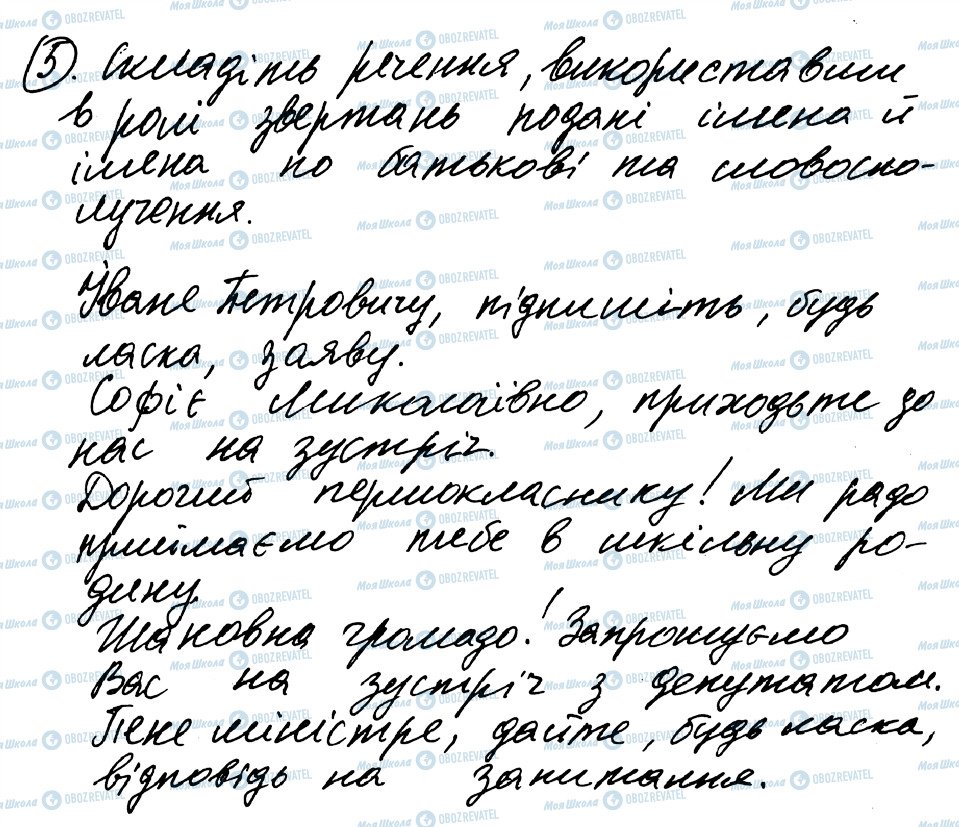 5. Складіть речення, використавши
в ролі звертань подані імена й
імена по батькові та словоспо-
лучення.
Іване Петровичу, підпишіть, будь
ласка, заяву.
Софіє Миколаївно, приходьте до
нас на зустріч.
Дорогий першокласнику! Ми радо
приймаємо тебе в шкільну ро-
дину.
Шановна громадо! Запрошуємо
Вас на зустріч з депутатом.
Пане міністре, дайте, будь ласка,
відповідь на запитання.